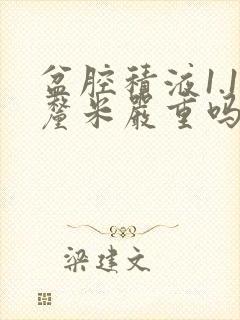 盆腔積液1.1
釐米嚴重嗎
梁建文